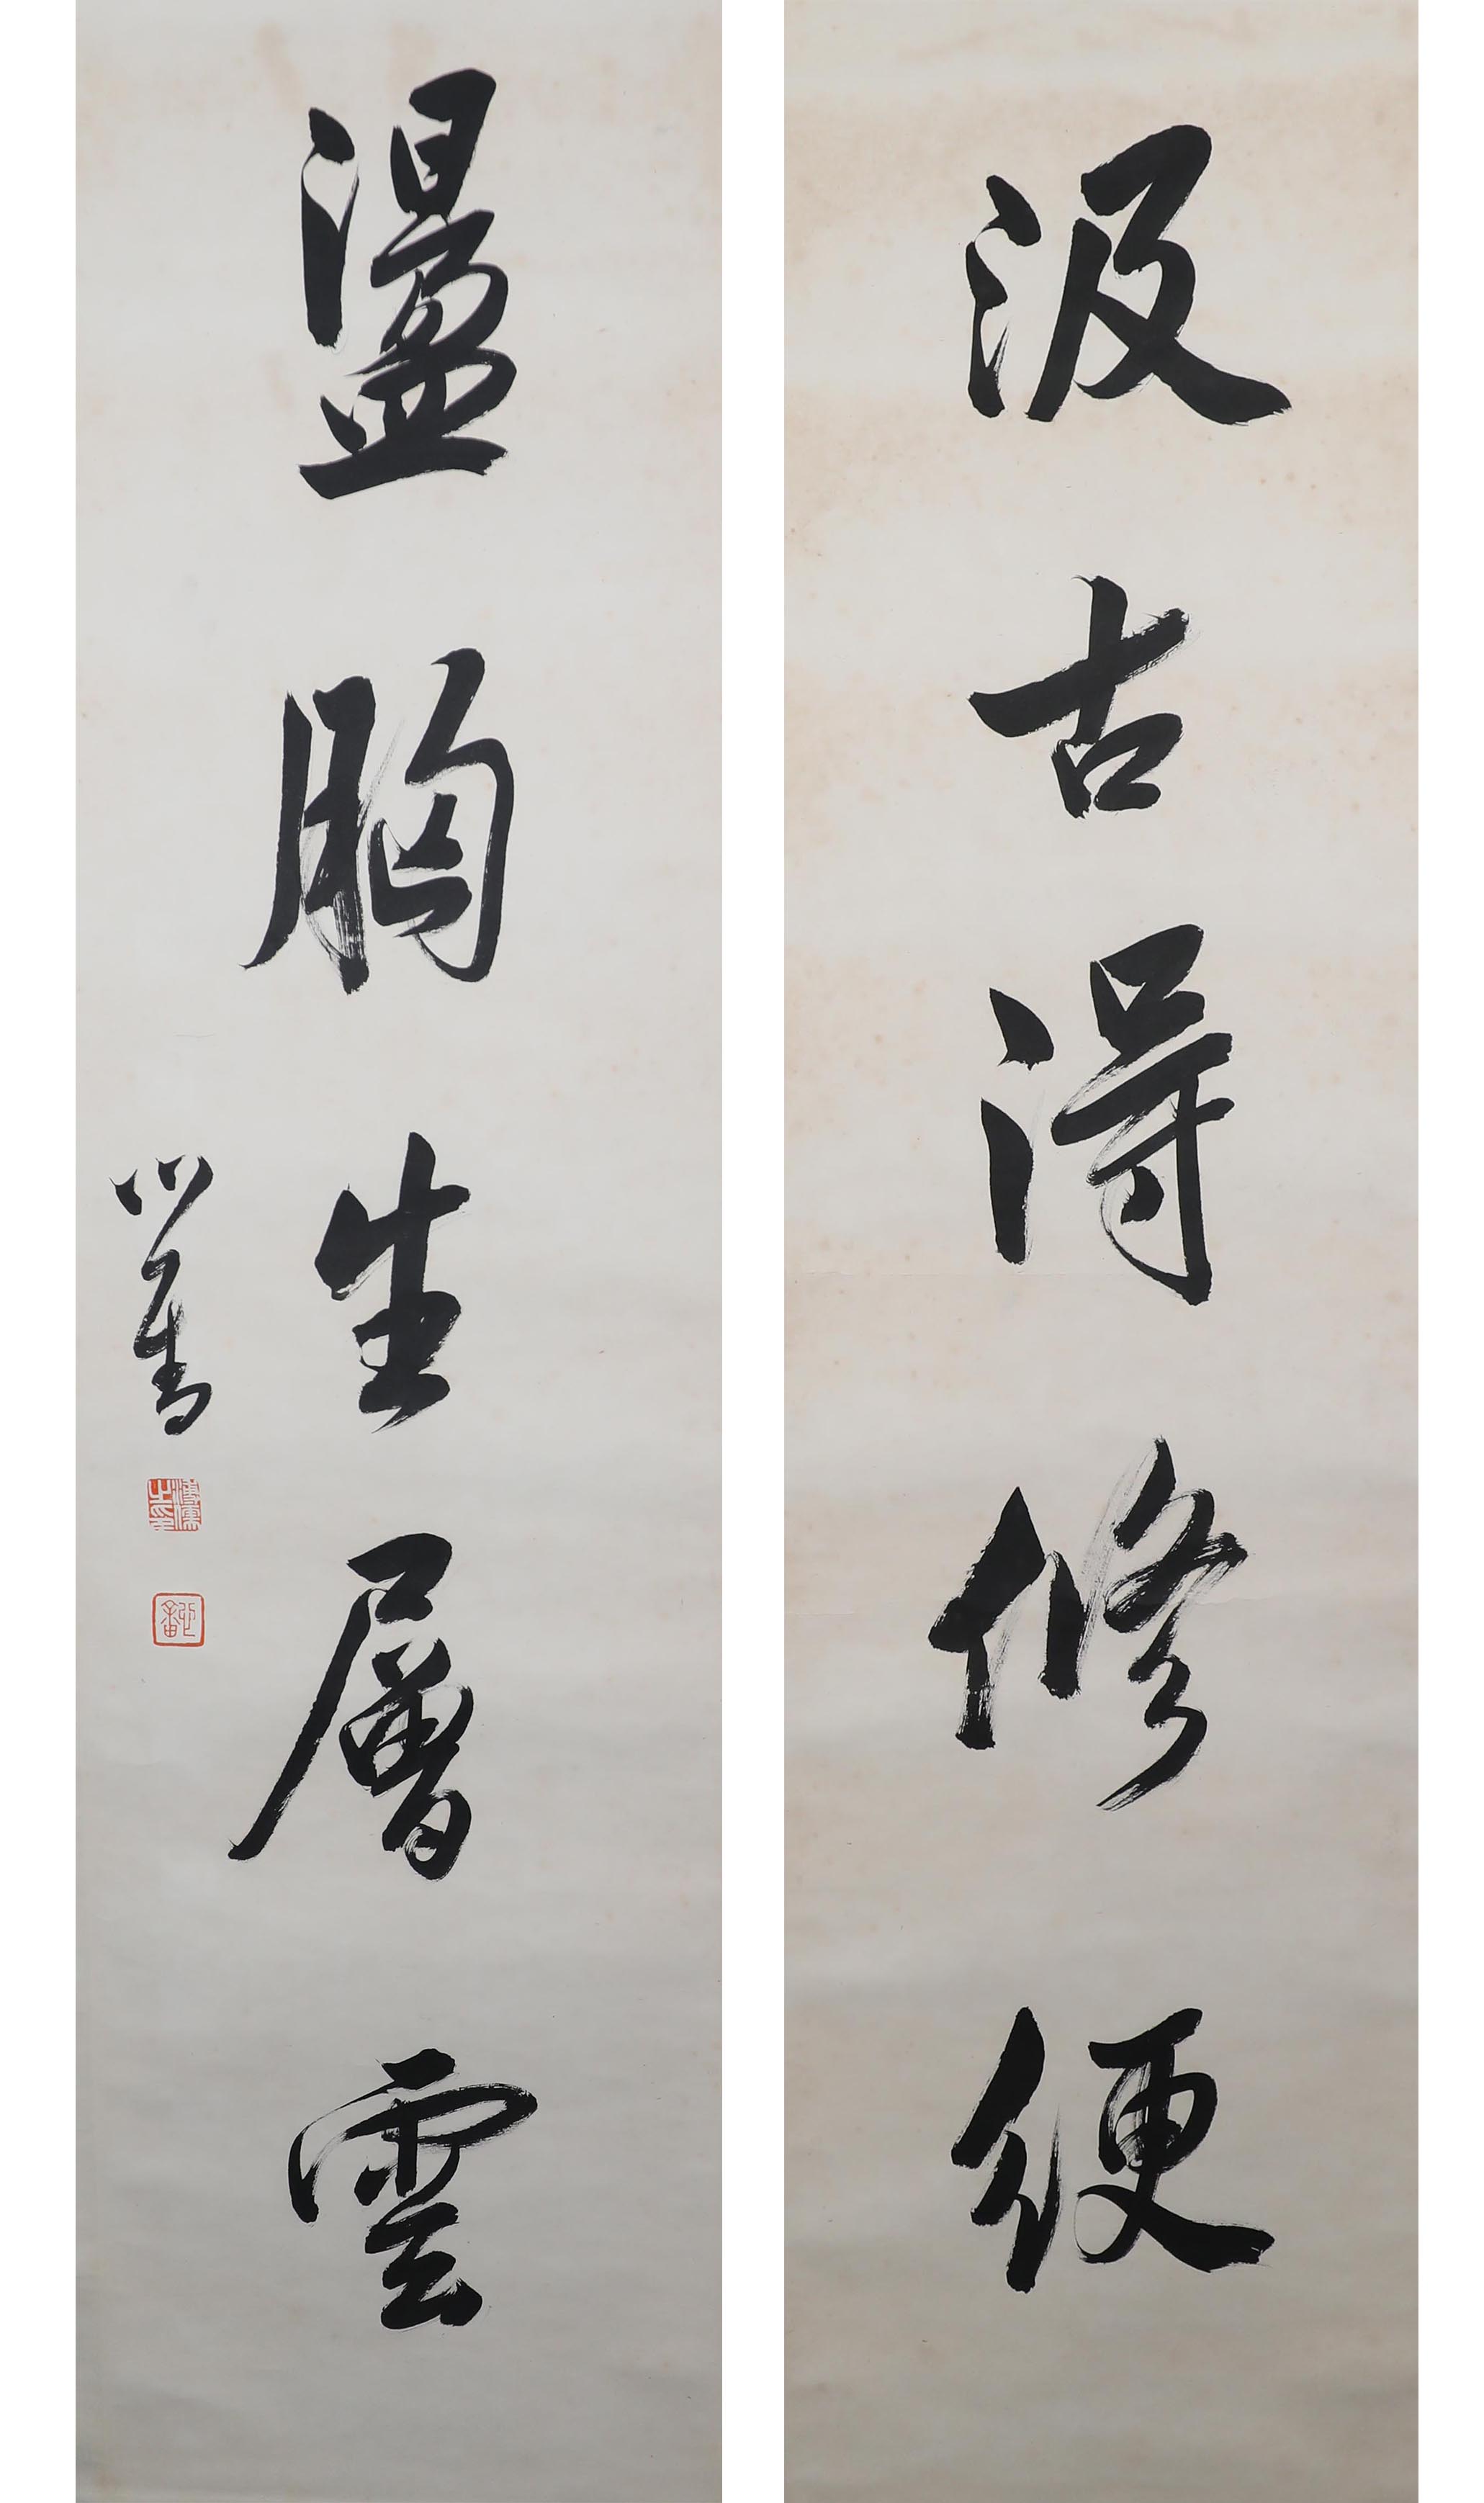 汲古得修綆
盪胸生層雲
心畬
溥儒之印